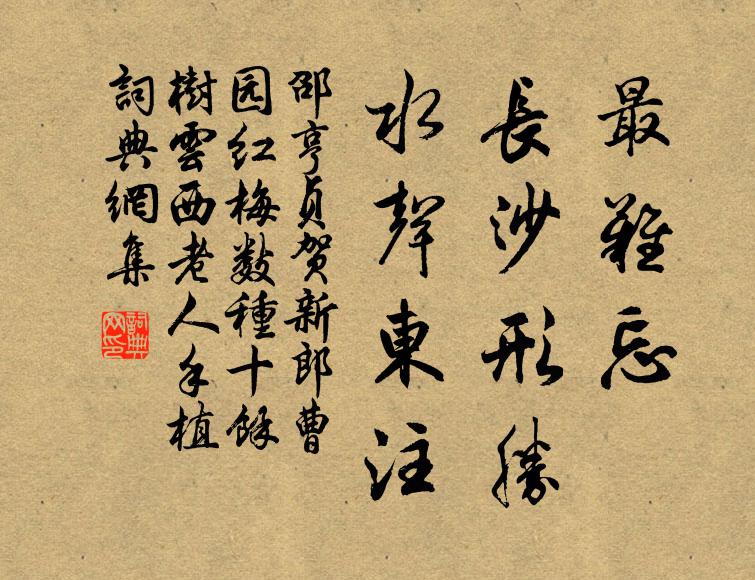 最難忘
長沙形勝
水聲東注
邵亨貞賀新郎曹
园红梅数種十餘
樹雲西老人手植
詞典網集
詞典网印